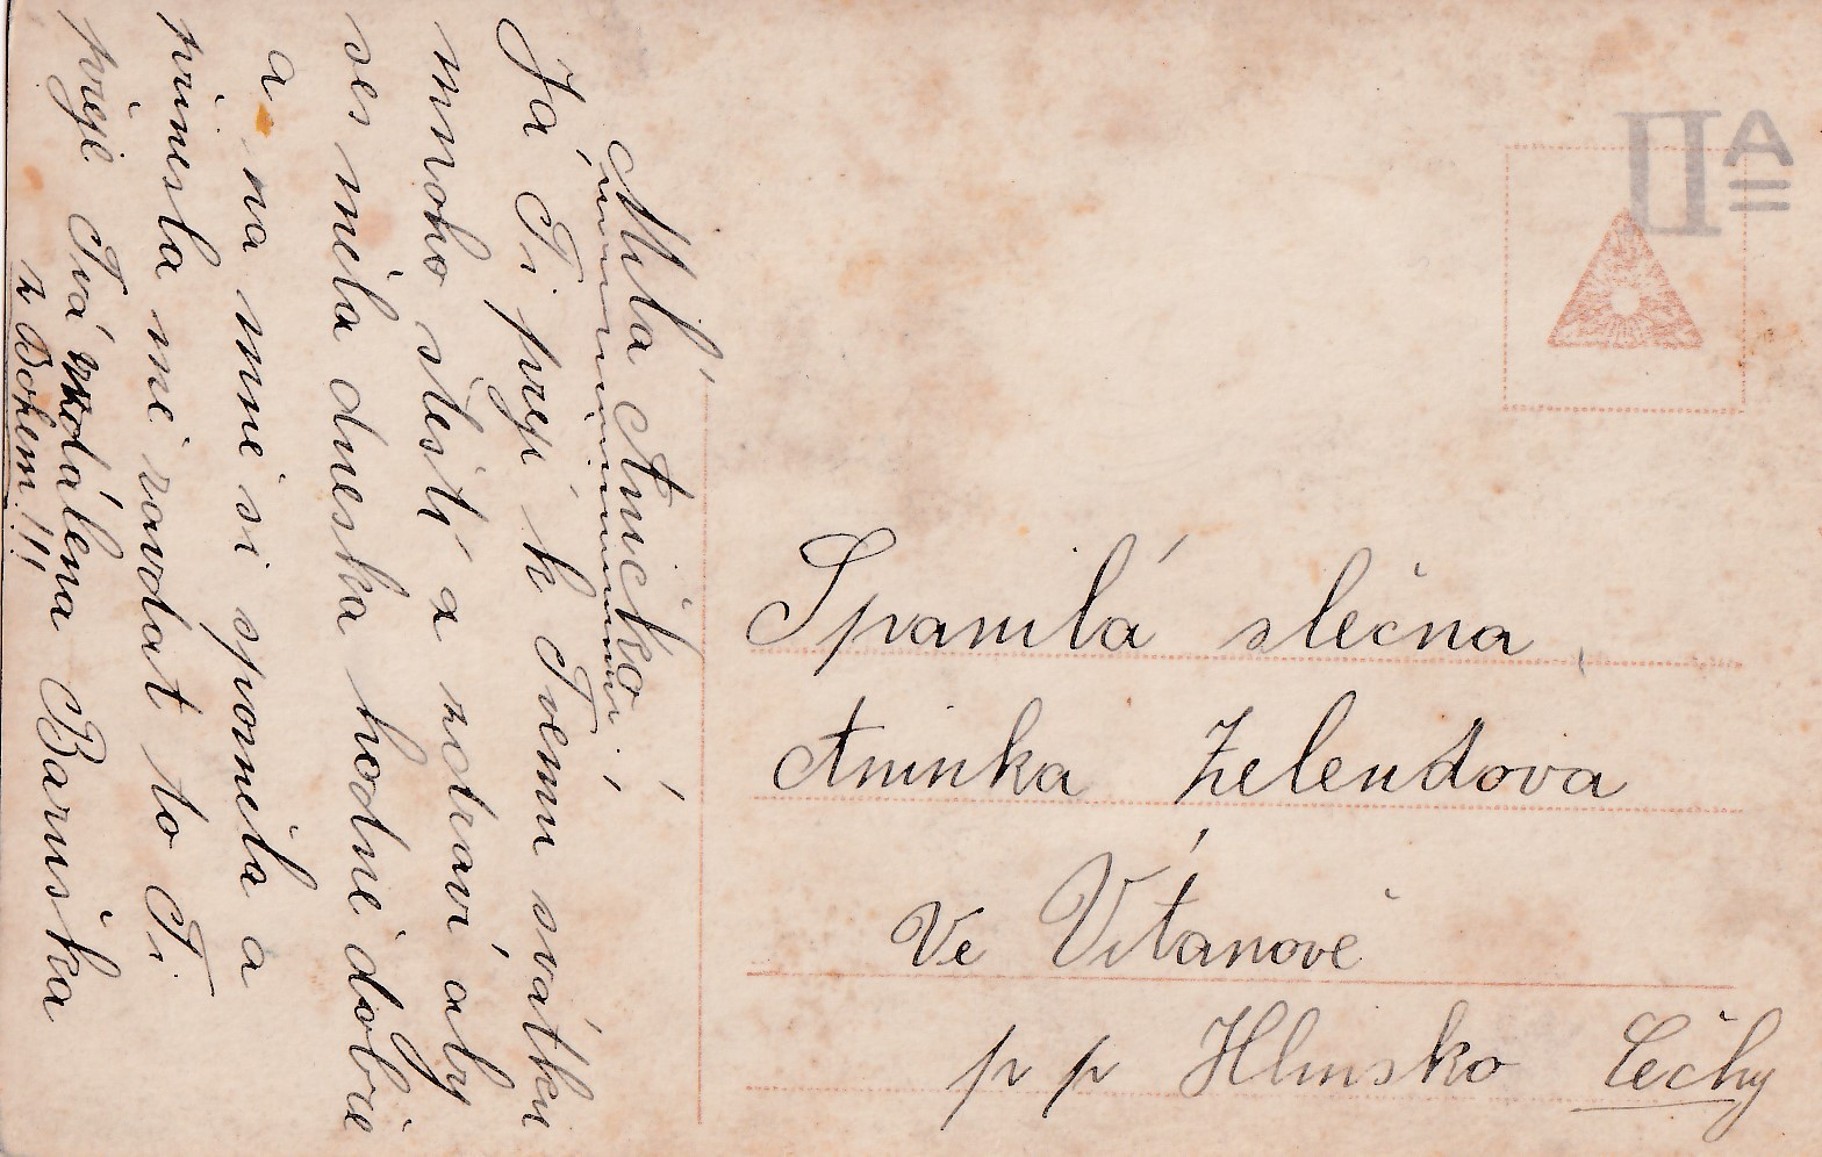 Milá Aničko!
Já Ti přeji k Tvemu svátku
mnoho štestí a zdraví aby
ses měla dneska hodně dobře
a na mně si spoměla a
přinesla mě ravdat to Ti
přeje Tvá vzdálena Baruška
z Bohem!!!
IIA
Spanilá slečna
Aninka Zelendova
Ve Vítanově
p p Hlinsko Čechy